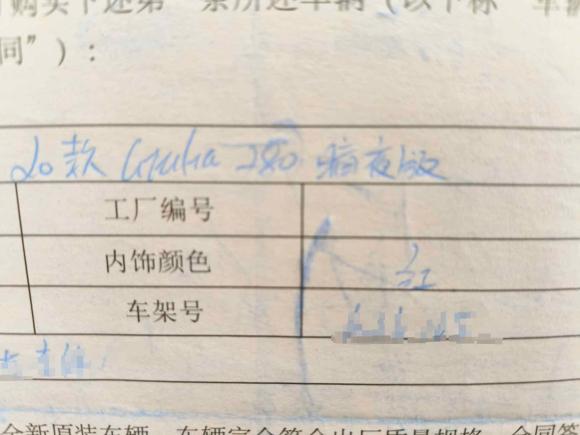 购买下述第一条所述车辆（以下称“车辆
同”）：
20款 Giulia 280 暗夜版
工厂编号
内饰颜色 红
车架号
全新原装车辆，车辆完全符合出厂质量规格，合同签